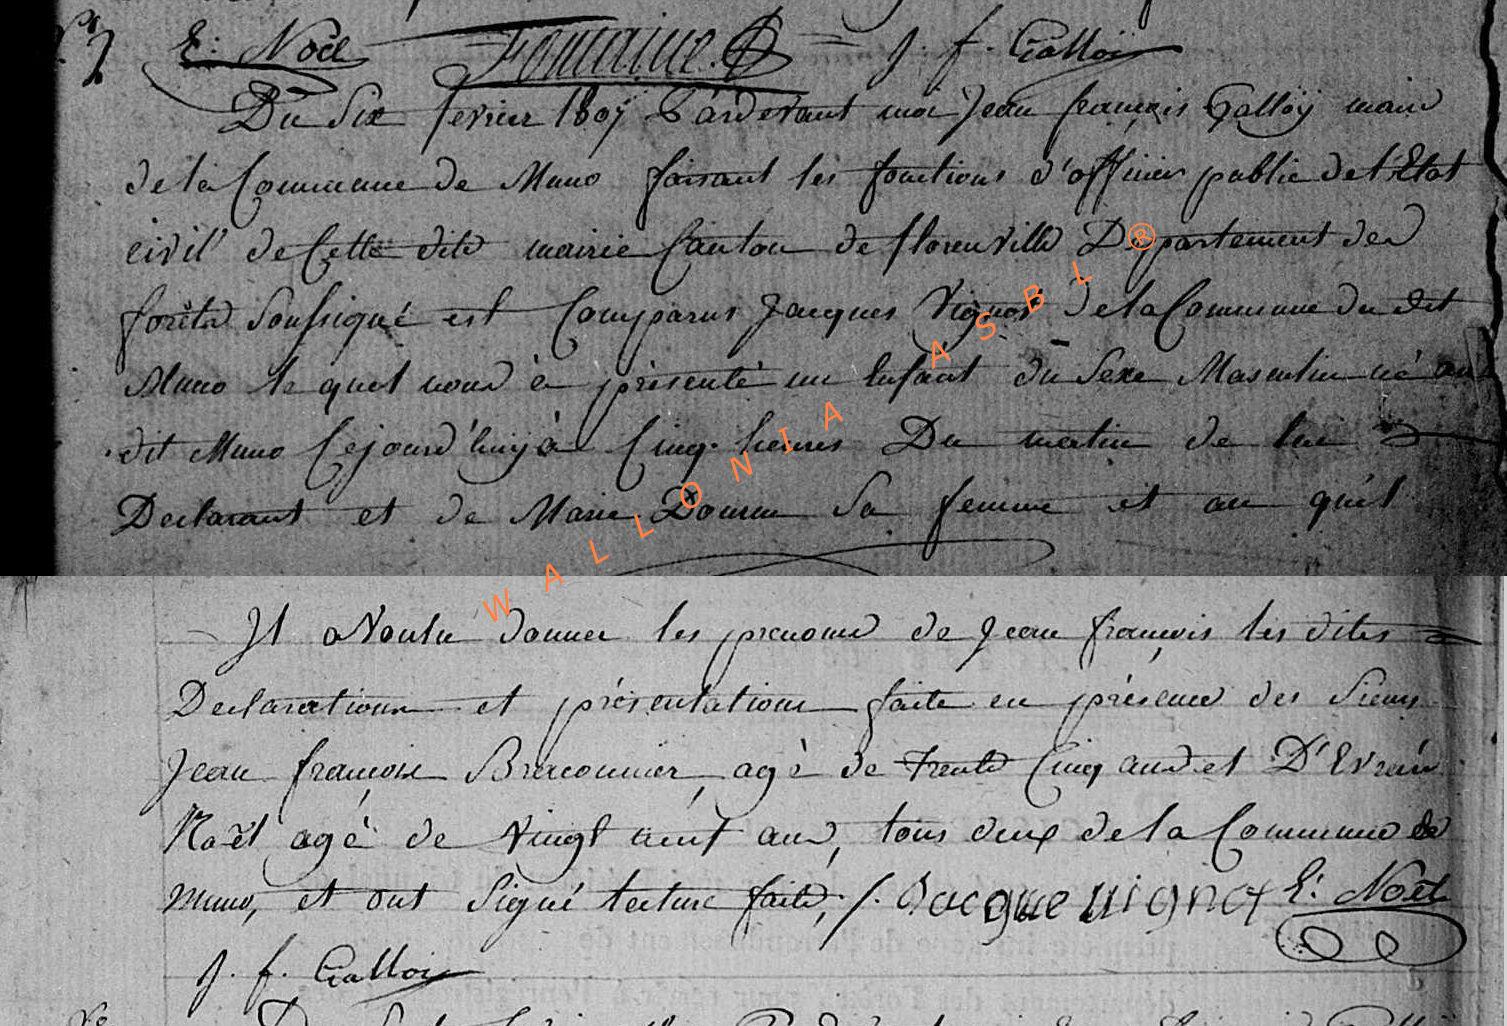 E: Noël Fontaine J. f. Galloÿ
Du Six fevrier 1807 Pardevant moi Jean françois Galloÿ maire
de la Commune de Muno faisant les fonctions d'officier public de l'Etat
civil de Cette dite mairie Canton de florenville Departement des
forêts Soussigné est Comparus Jacques Vignot de la Commune du dit
Muno le quel nous à présenté un Enfant du Sexe Masculin né au
dit Muno Cejourd'huy à Cinq heures Du matin de lui
Declarant et de Marie Sa femme et au quel
Il a Voulu donner les prenoms de Jean françois les dites
Declaration et présentation faite en présence des Sieurs
Jean françois Braconnier, agé de trente Cinq ans et D'Evrard
Noël agé de Vingt neuf ans, tous deux de la Commune de
Muno, et ont Signé lecture faite, /. Jacque uignot E: Noël
J. f. Galloÿ
WALLONIA ASBL ®